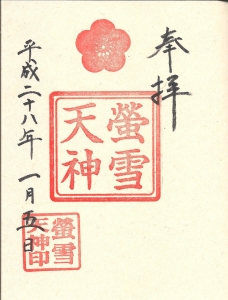 奉拝
螢雪
天神
平成二十八年 一月五日
螢雪
天神印